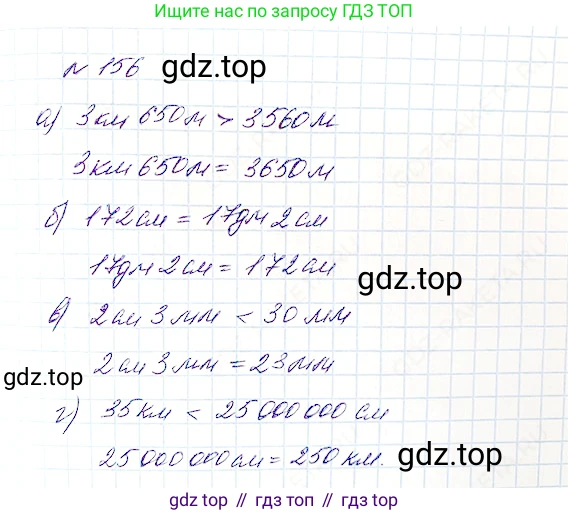 Ищите нас по запросу ГДЗ ТОП
№ 156 gdz.top
а) 3км 650м > 3560м
3км 650м = 3650м
б) 172см = 17дм 2см
17дм 2см = 172см
gdz.top
в) 2см 3мм < 30мм
2см 3мм = 23мм
gdz.top
г) 35км < 25 000 000 см
25 000 000 см = 250 км.
gdz.top
gdz.top // гдз топ // гдз.top